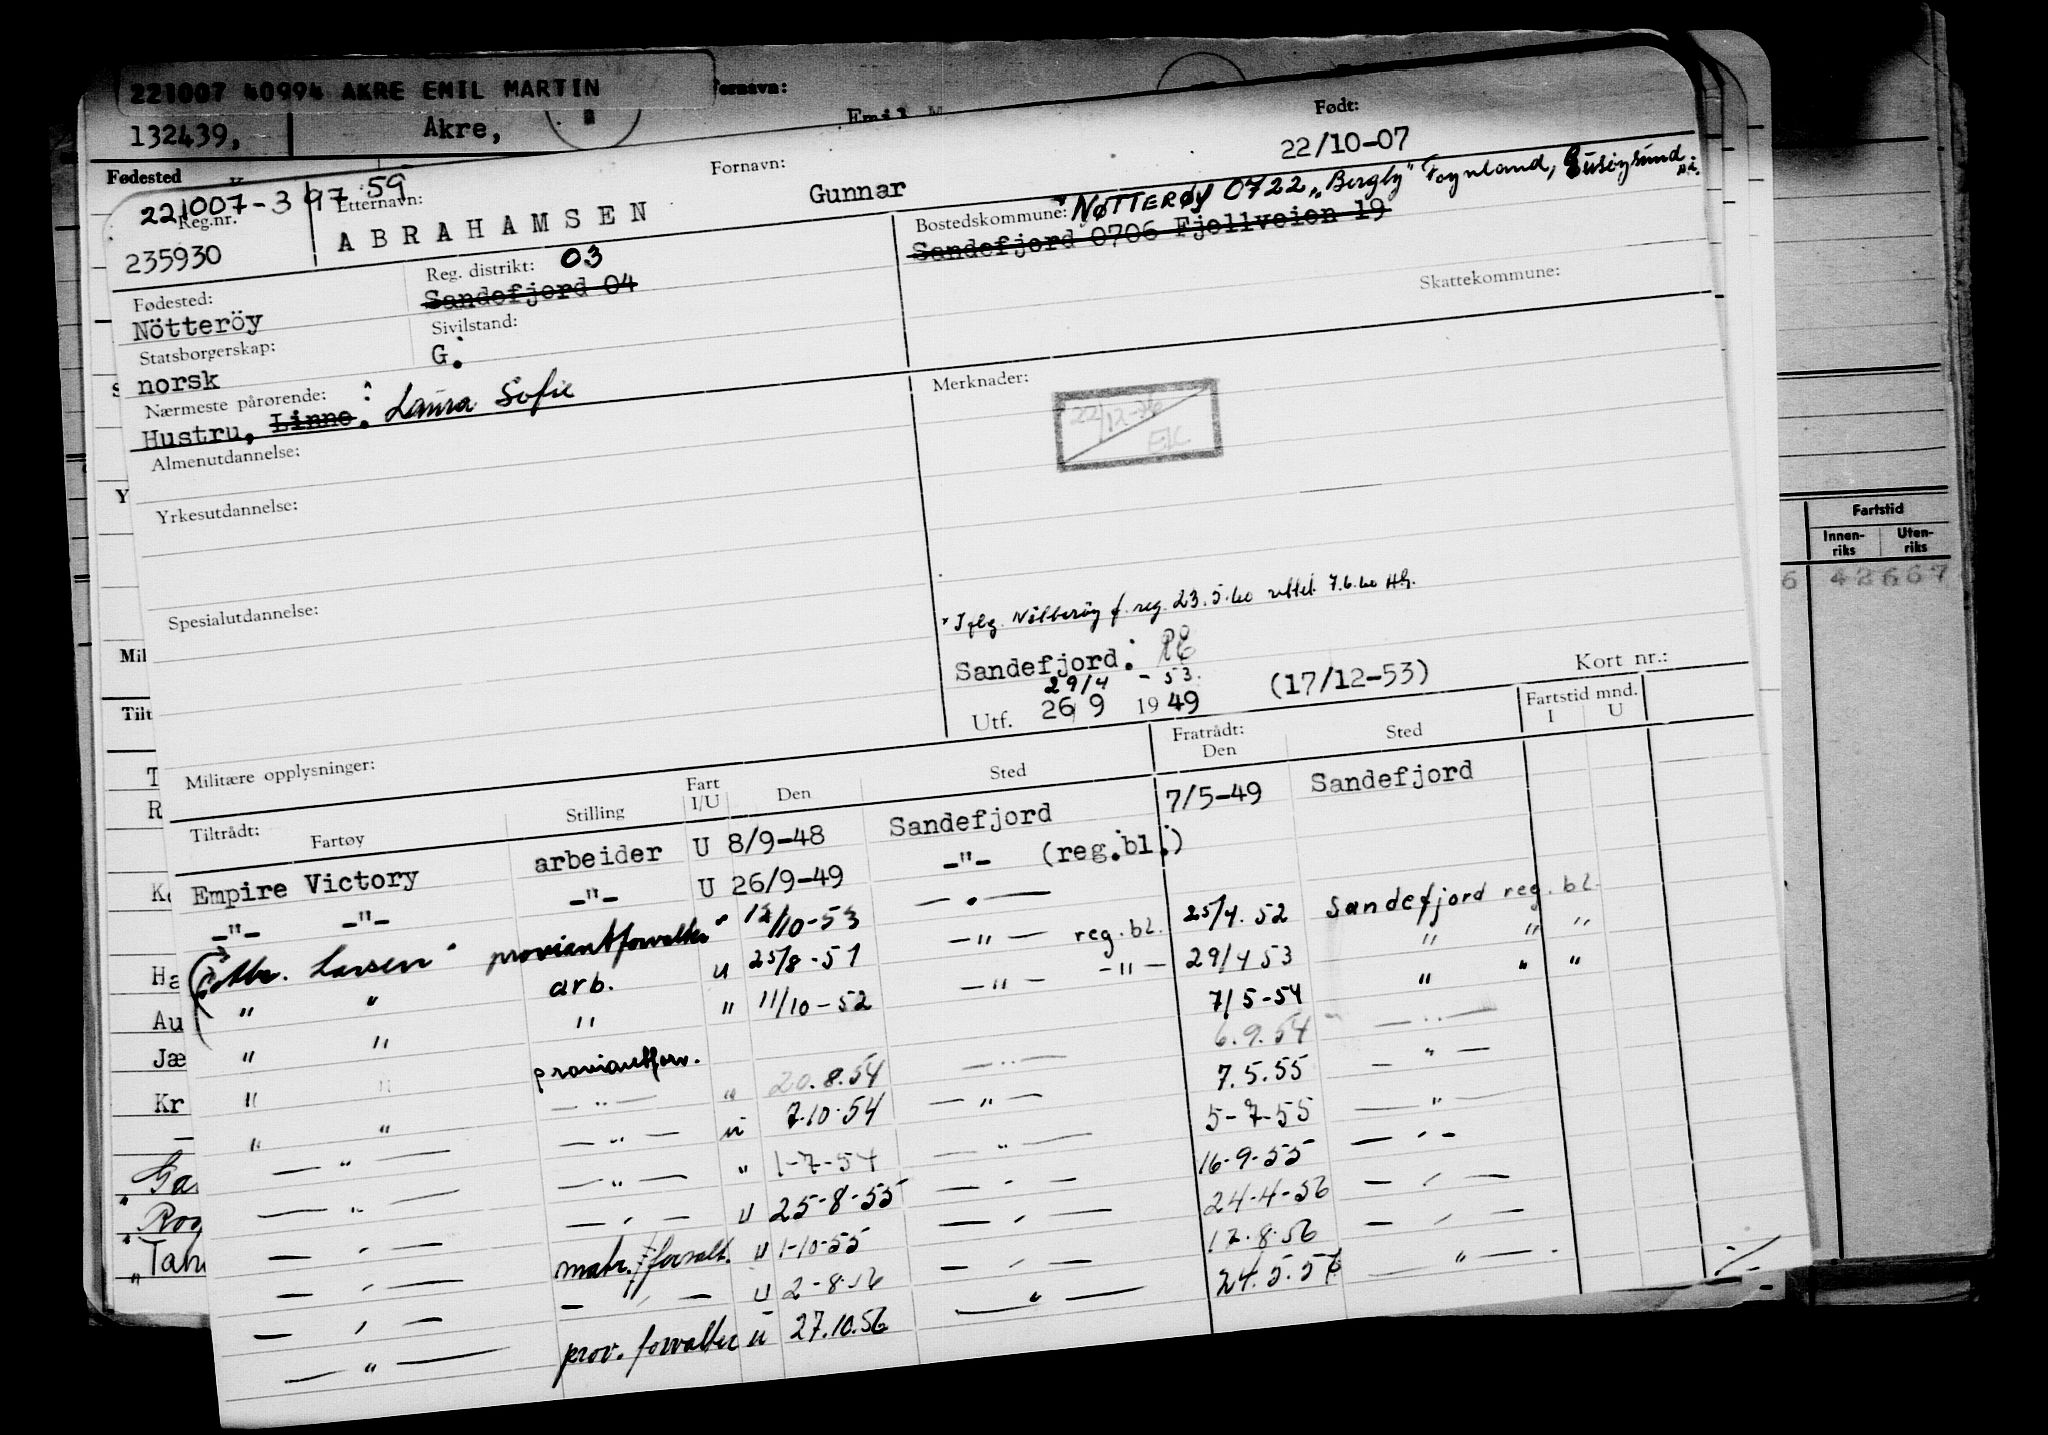 221007 40994 AKRE EMIL MARTIN
Fornavn:
132439, Akre, Emil M
Fødested
Født:
22/10-07
221007-3 97 59
Reg.nr. Etternavn: Fornavn:
235930 ABRAHAMSEN Gunnar
Bostedskommune: NØTTERØY 0722 „Bergly" Føynland,
Sandefjord 0706 Fjellveien 19
Skattekommune:
Fødested: Reg. distrikt: 03
Nötteröy Sandefjord 04
Statsborgerskap: Sivilstand:
norsk G.
Nærmeste pårørende: Merknader:
Hustru, Linne. Laura Sofie
22/12-
EK
Almenutdannelse:
Yrkesutdannelse:
Spesialutdannelse:
Iflg. Nötteröy f. reg. 23.5.60 rettet 7.6.60 HG.
Sandefjord.
29/4 - 53.
Utf. 26 9 1949 (17/12-53) Kort nr.:
Militære opplysninger:
Tiltrådt: Fartøy Stilling Fart I/U Den Sted Fratrådt: Den Sted Fartstid mnd. I U
Empire Victory arbeider U 8/9-48 Sandefjord 7/5-49 Sandefjord
-"- -"- -"- U 26/9-49 -"- (reg.bl.)
Thr. Larsen proviantforvalter " 12/10-53 — " —
" " arb. u 25/8-51 — " — reg. bl. 25/4. 52 Sandefjord reg. bl.
" " " " 11/10-52 — " — — " — 29/4 53 " " "
" " proviantforv. 7/5-54 " " "
" " — " — " 20.8.54 — " — 6.9.54 — " —
— " — — " — u 7.10.54 — " — 7.5.55 — " —
— " — — " — " 1-7-54 — " — 5-7-55 — " —
— " — — " — u 25-8-55 — " — 16-9-55 — " —
— " — matr./forvalt. u 1-10-55 — " — 24-4-56 — " —
— " — — " — u 2-8-56 — " — 12.8.56 — " —
— " — prov. forvalter u 27.10.56 — " — 24.5.57 — " —
Fartstid
Innen-
riks
Uten-
riks
6 42667
Mil
Tilt
Au
Jæ
Kr